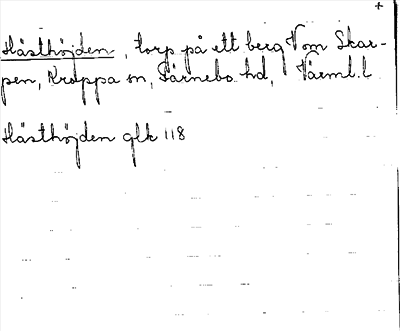 +
Hästhöjden, torp på ett berg V om Skar-
pen, Kroppa sn, Färnebo hd, Värml. l
Hästhöjden glk 118